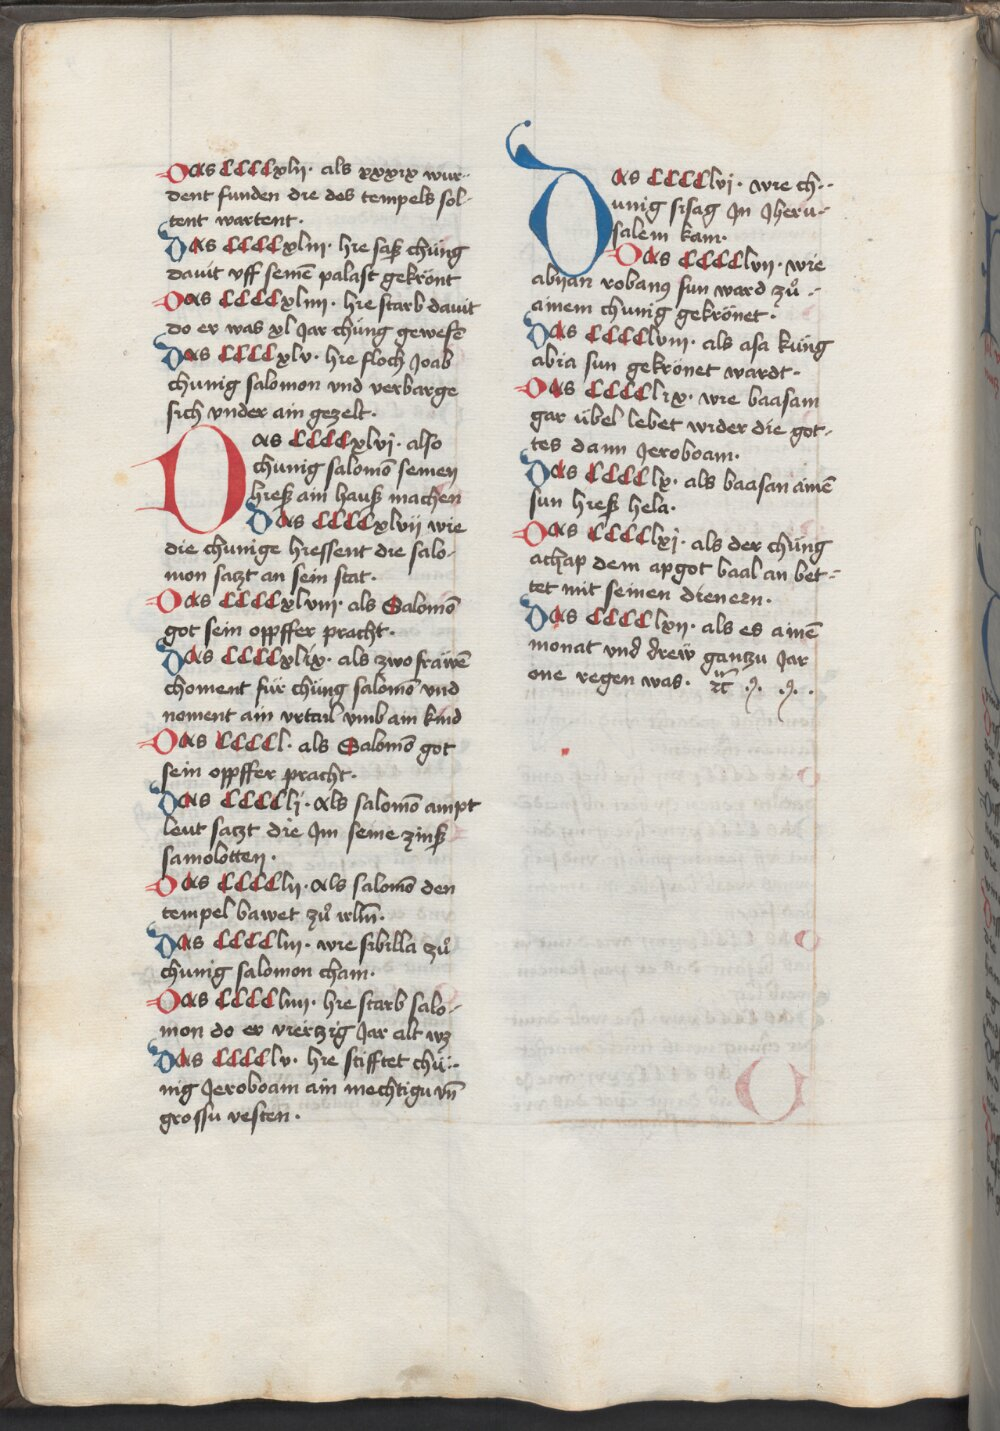 Das CCCCxlii· als xxxix wur-
dent funden die des tempels sol-
tent wartent·
Das CCCCxliii· hie saß chúng
dauit vff seinē palast gekrónt
Das CCCCxliiii· hie starb dauit
do er was xl Jar chúng gewesē
Das CCCCxlv· hie floch Joab
chunig salomon vnd verbarge
sich vnder ain gezelt·
Das CCCCxlvi· also
chunig salomō seinen
hieß ain hauß machen
Das CCCCxlvii wie
die chunige hiessent die salo-
mon satzt an sein stat·
Das CCCCxlviii· als Salomō
got sein oppffer pracht·
Das CCCCxlix· als zwo frawē
choment für chúng salomō vnd
noment ain vrtail vmb ain kind
Das CCCCl· als Salomō got
sein oppffer pracht·
Das CCCClj· als salomō ampt
leut satzt die Jm seine zinß
samolotten·
Das CCCClii· als salomō den
tempel bawet zů irlm̄·
Das CCCCliii· wie sibilla zů
chunig salomon cham·
Das CCCCliiii· hie starb salo-
mon do er viertzig Jar alt wz
Das CCCClv· hie stifftet chú-
nig Jeroboam ain mechtigu vn̄
grossu vesten·
Das CCCClvi· wie ch-
unig sisag Jn Jheru-
salem kam·
Das CCCClvii· wie
abyan robanꝰ sun ward zů
ainem chunig gekrónet·
Das CCCClviii· als asa kúng
abia sun gekrónet wardt·
Das CCCClix· wie baasam
gar úbel lebet wider die got-
tes dann Jeroboam·
Das CCCClx· als baasan ainē
sun hieß hela·
Das CCCClxj· als der chúng
achap dem apgot baal an bet-
tet mit seinen dienern·
Das CCCClxii· als es ainē
monat vnd drew gantzu Jar
one regen was·